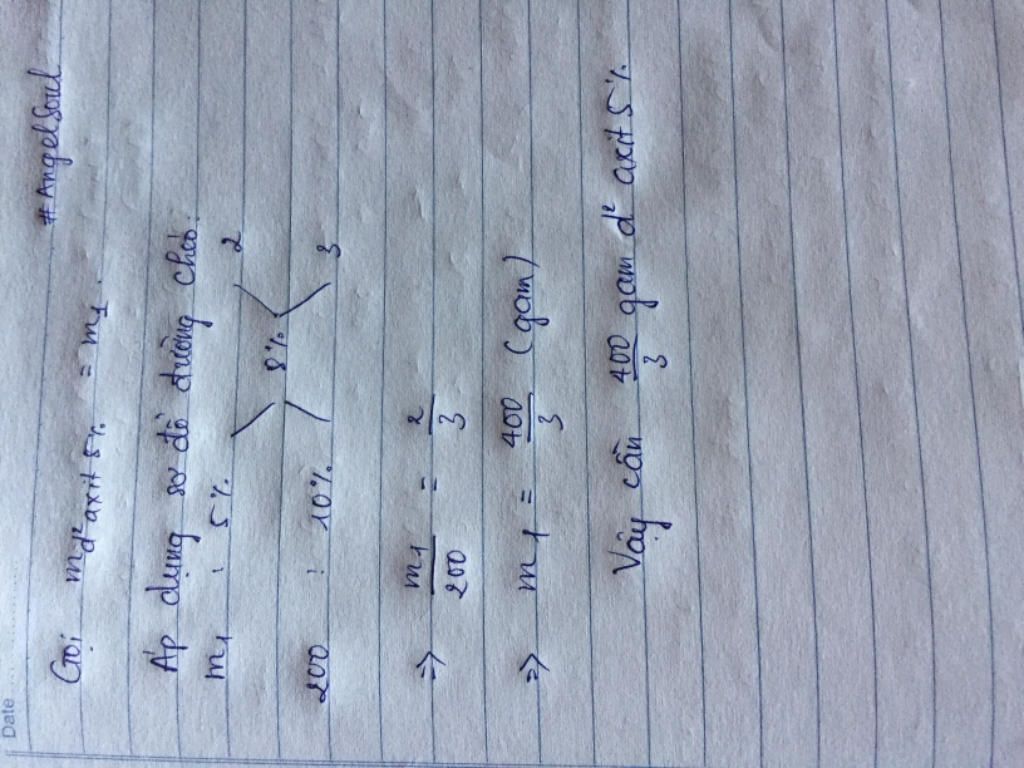 Date
#AngelSoul
Gọi m d² axit 5% = m1.
Áp dụng sơ đồ đường chéo:
m1 : 5% 2
8%
200 : 10% 3
=> m1/200 = 2/3
=> m1 = 400/3 (gam)
Vậy cần 400/3 gam d² axit 5%.